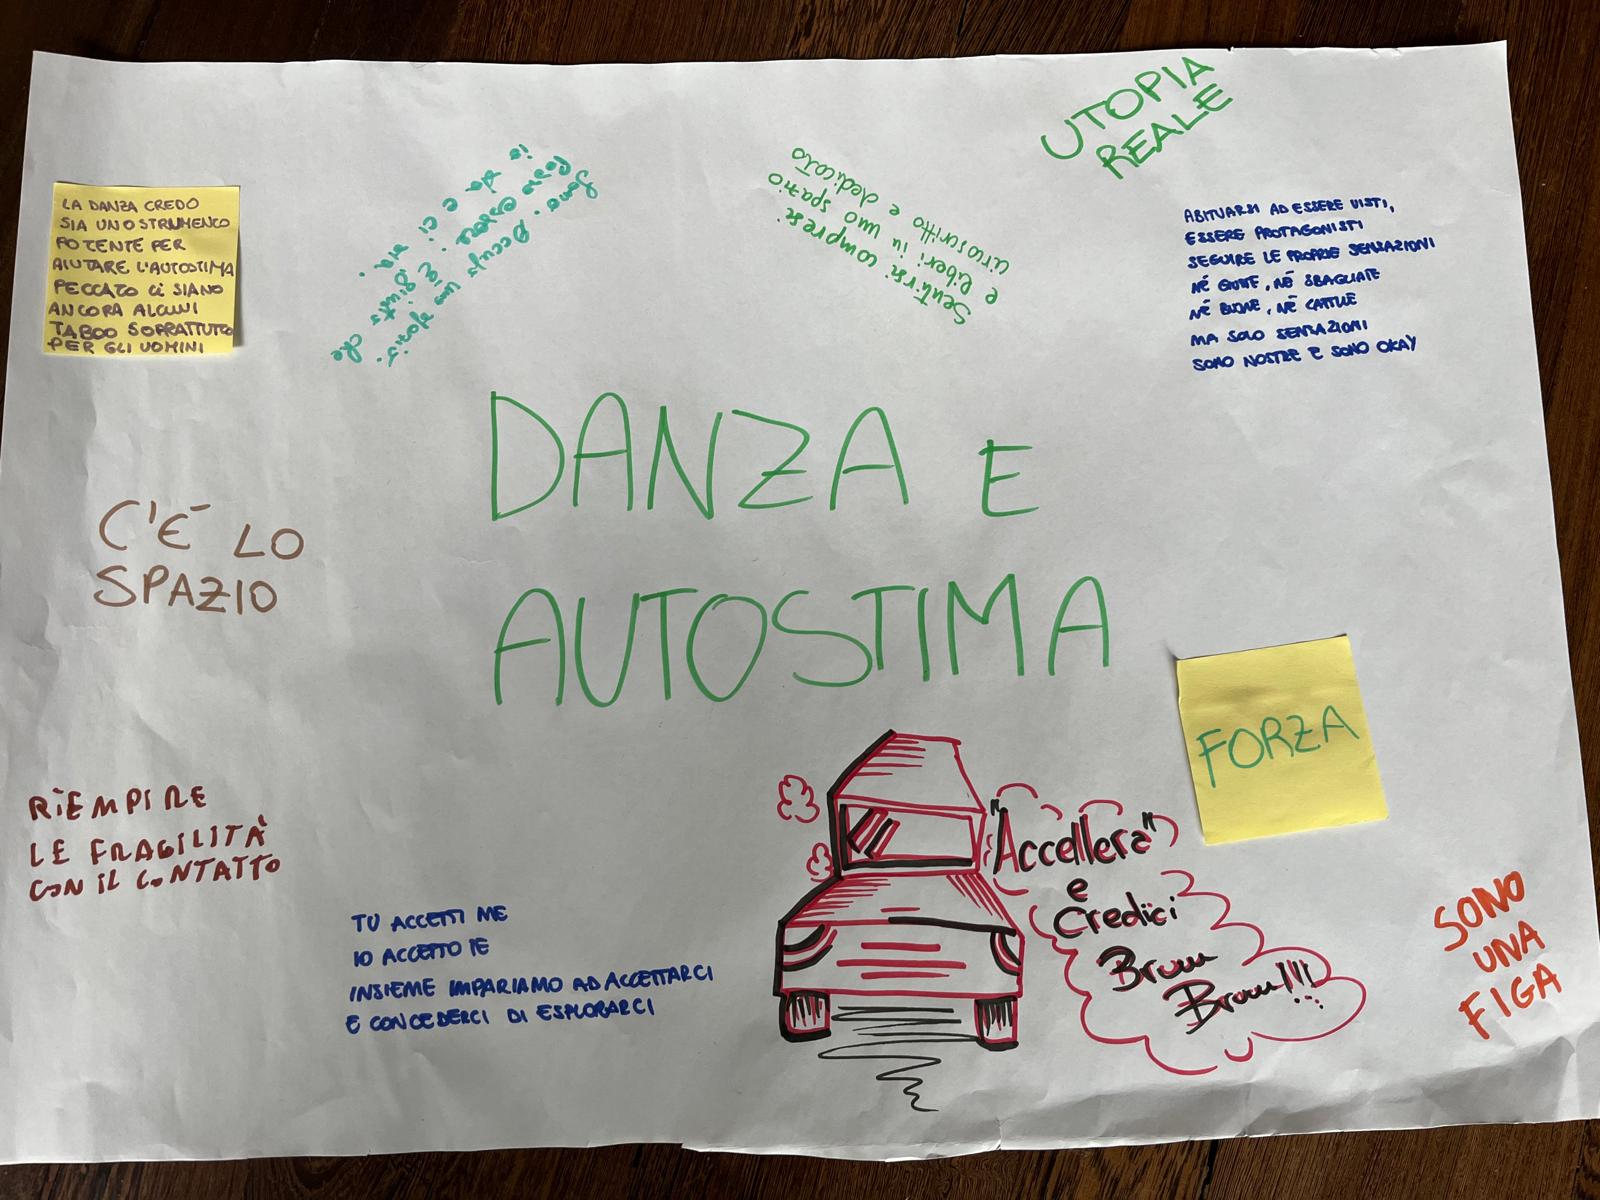 UTOPIA
REALE
LA DANZA CREDO
SIA UNO STRUMENTO
POTENTE PER
AIUTARE L'AUTOSTIMA
PECCATO CI SIANO
ANCORA ALCUNI
TABOO SOPRATTUTTO
PER GLI UOMINI
Sono. Occupo uno spazio.
Posso essere. È giusto che
io sia e ci sia.
Sentirsi compresi
e liberi in uno spazio
circoscritto e dedicato
ABITUARSI AD ESSERE VISTI,
ESSERE PROTAGONISTI
SEGUIRE LE PROPRIE SENSAZIONI
NÉ GIUSTE, NÉ SBAGLIATE
NÉ BUONE, NÉ CATTIVE
MA SOLO SENSAZIONI
SONO NOSTRE E SONO OKAY
DANZA E
AUTOSTIMA
C'É LO
SPAZIO
FORZA
RIEMPIRE
LE FRAGILITÀ
CON IL CONTATTO
TU ACCETTI ME
IO ACCETTO TE
INSIEME IMPARIAMO AD ACCETTARCI
E CONCEDERCI DI ESPLORARCI
"Accellera"
e
Credici
Brum
Brum!!!
SONO
UNA
FIGA